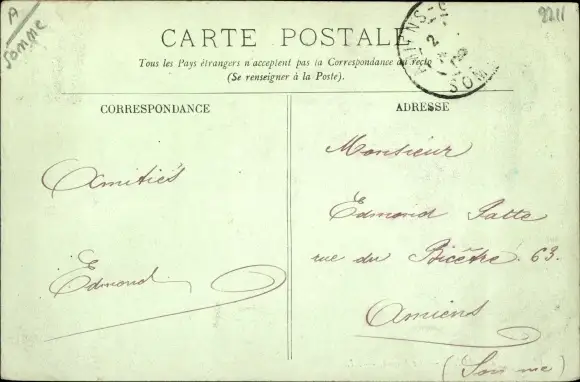 A
Somme
2211
CARTE POSTALE
Tous les Pays étrangers n'acceptent pas la Correspondance au recto
(Se renseigner à la Poste).
AMIENS
SOMME
CORRESPONDANCE
ADRESSE
Amitiés
Edmond
Monsieur
Edmond Patte
rue du Bicêtre. 63.
Amiens
(Somme)